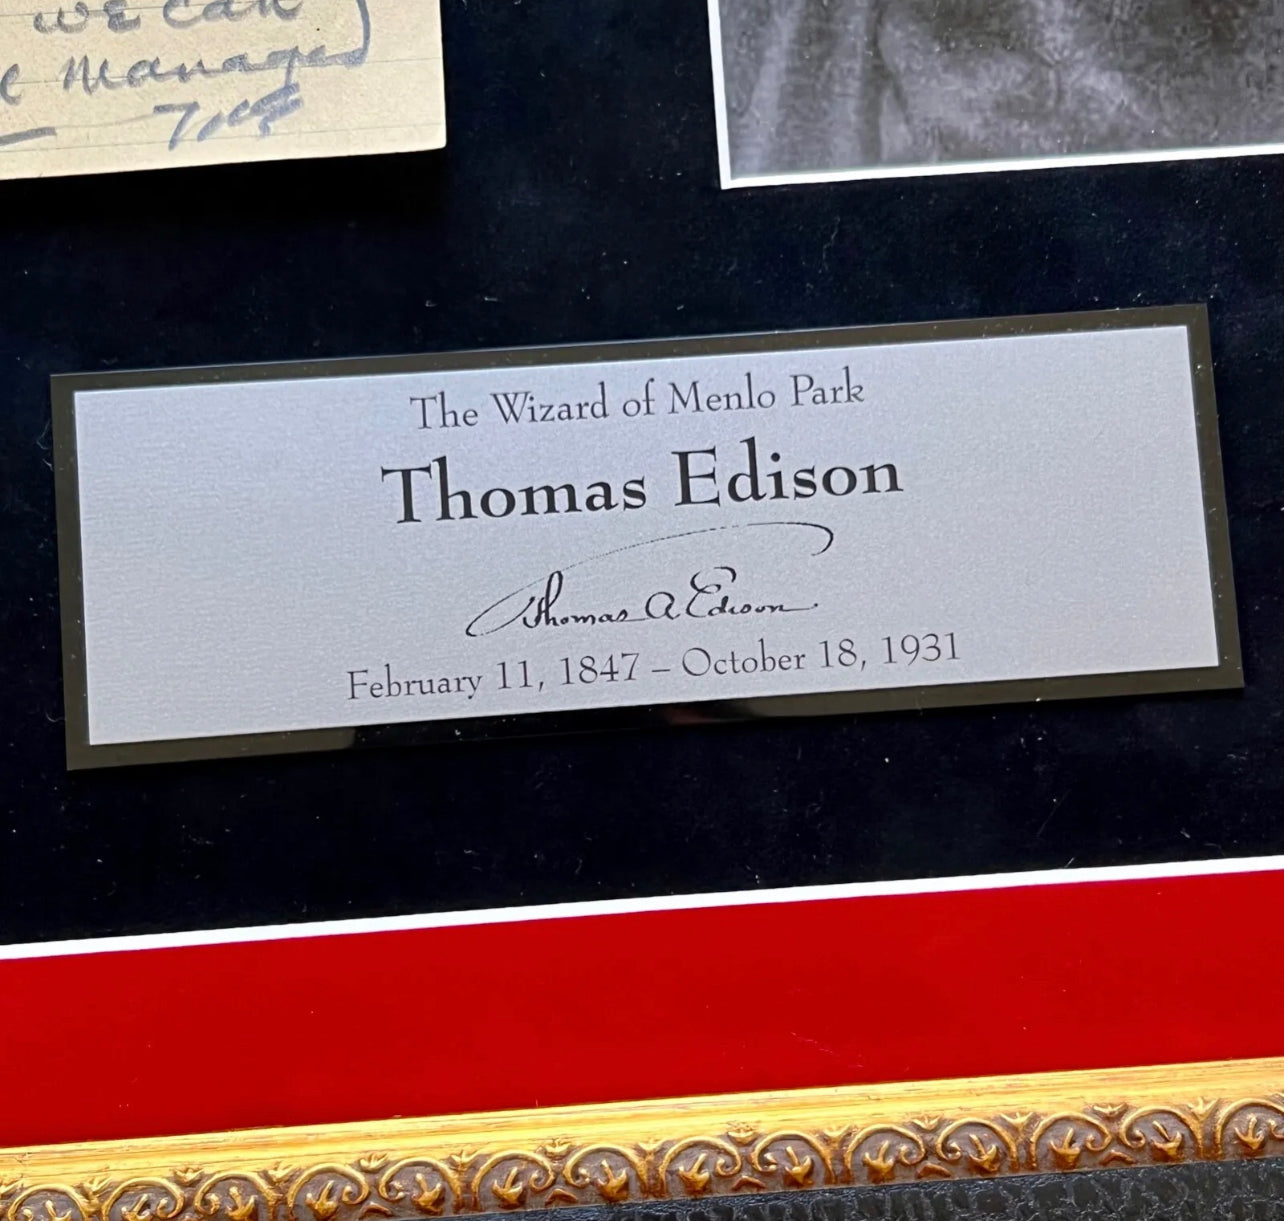 we can
e managed
The Wizard of Menlo Park
Thomas Edison
Thomas A Edison
February 11, 1847 – October 18, 1931